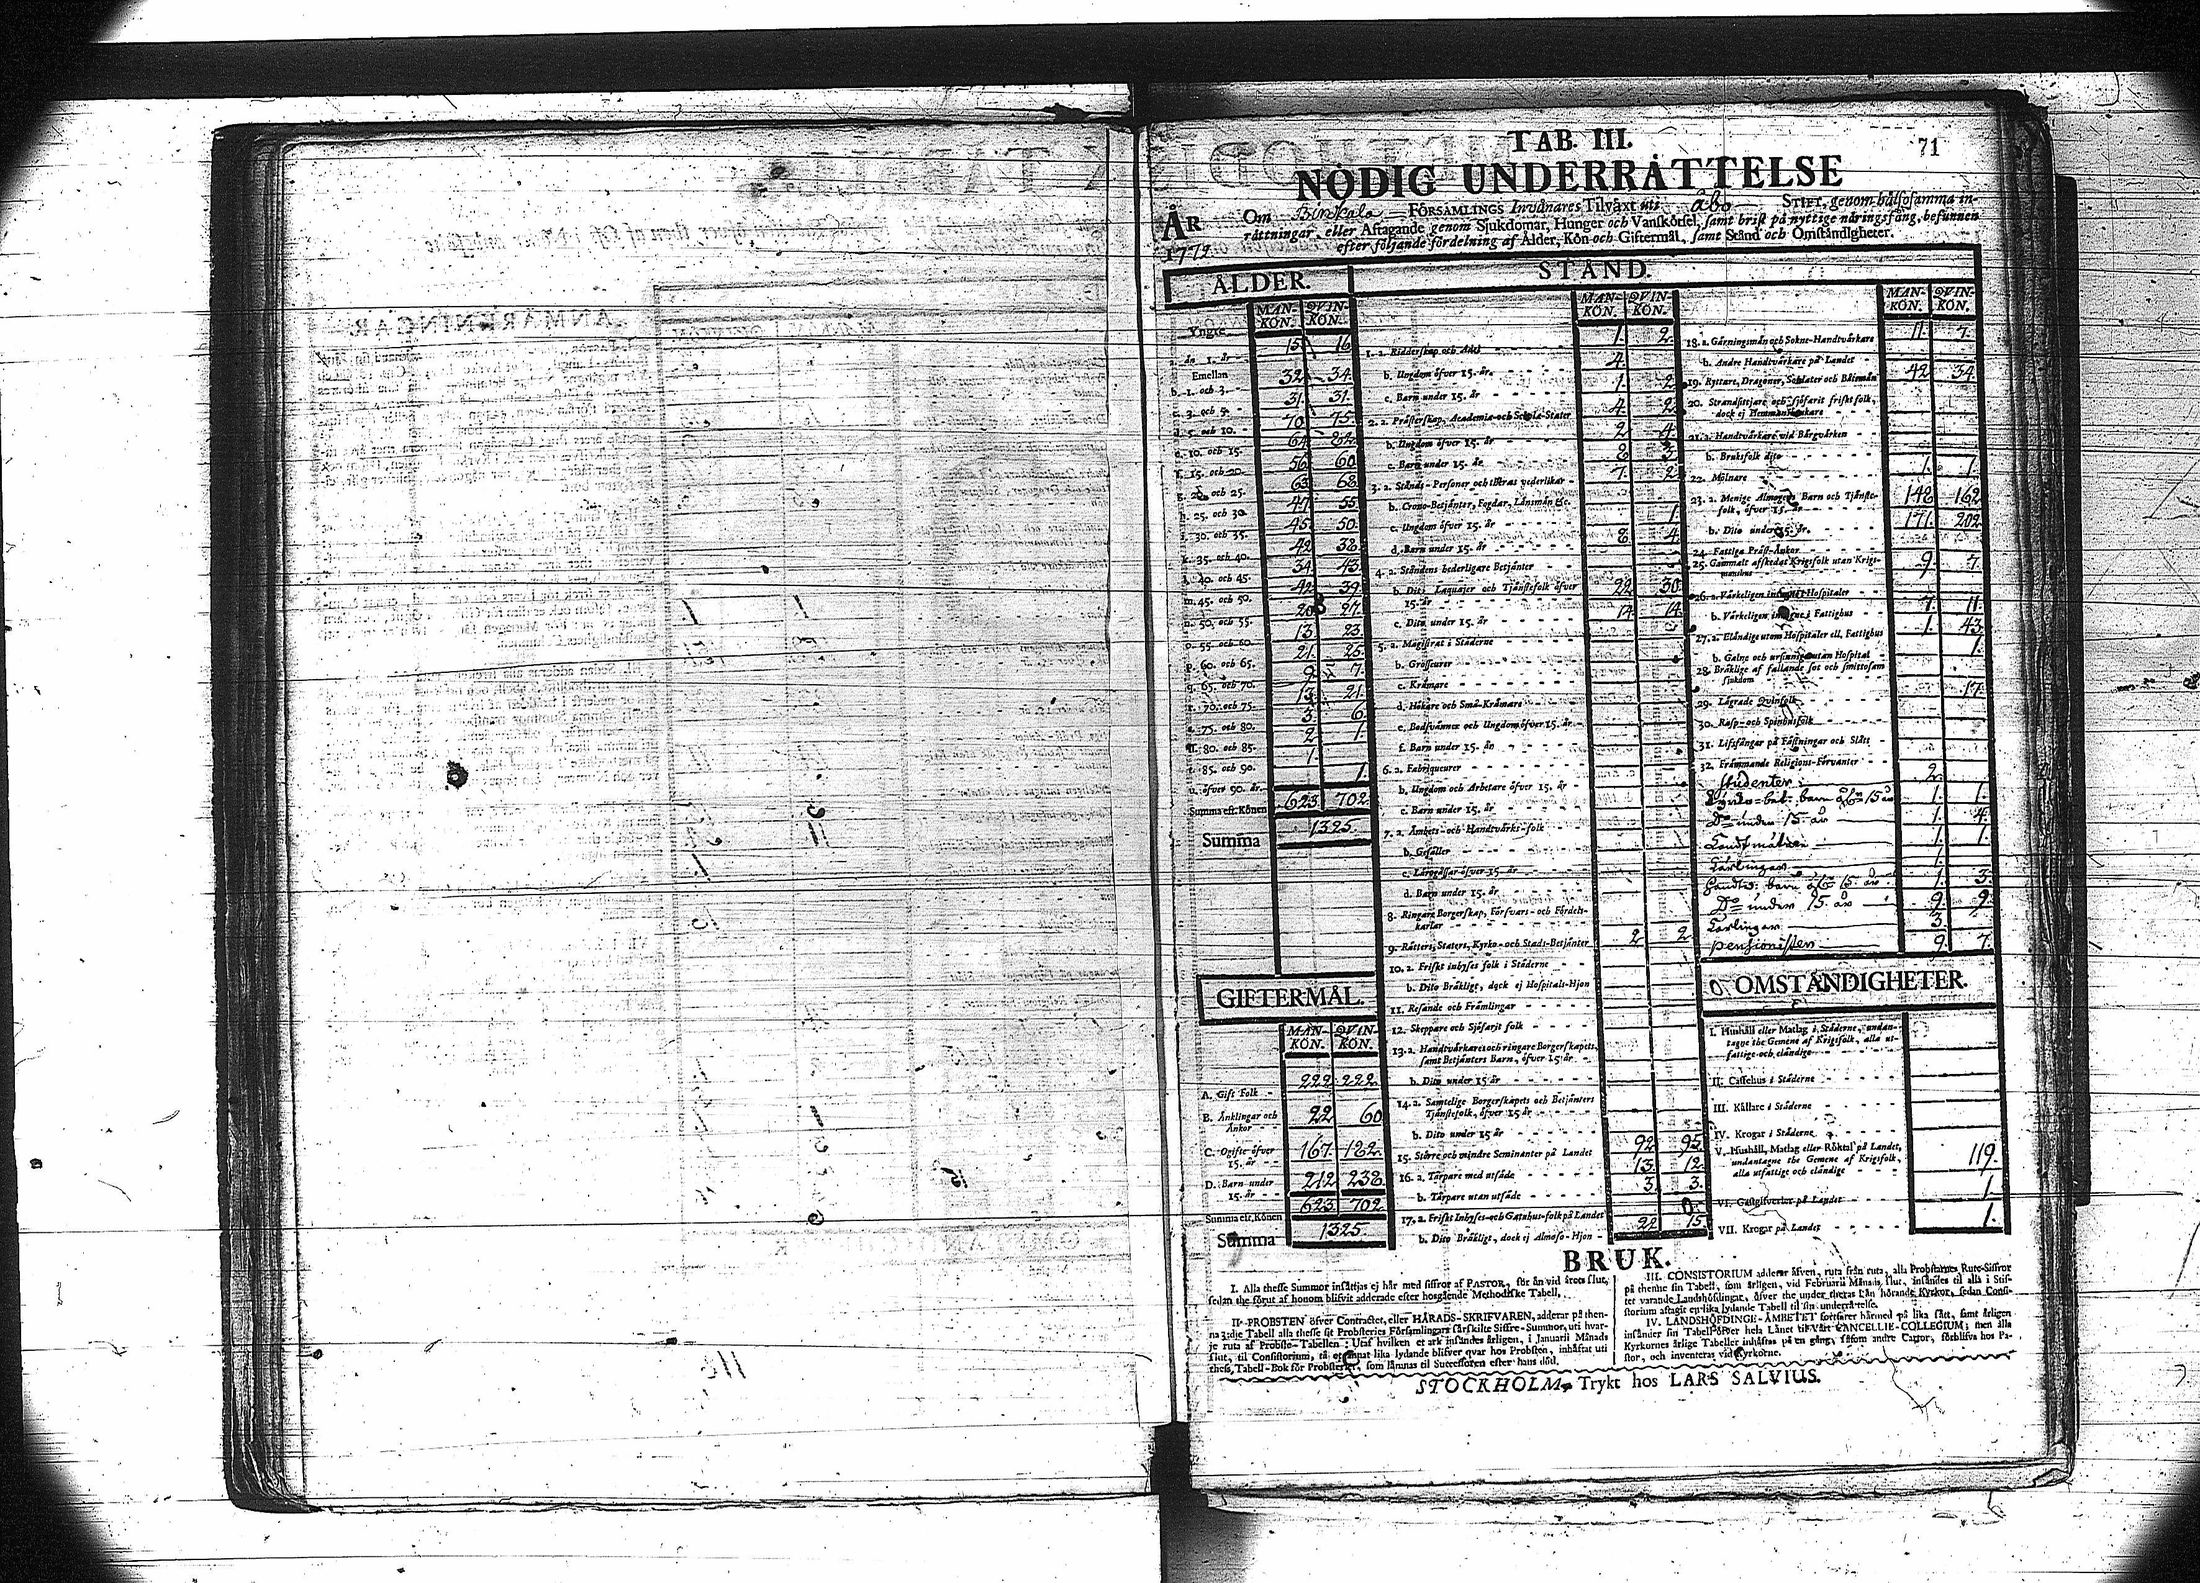 71
TAB. III.
NÖDIG UNDERRÅTTELSE
ÅR 1772
Om Birkala FÖRSAMLINGS Invånares Tilvåxt uti Åbo STIFT, genom hålsosamma in-
råttningar, eller Aftagande genom Sjukdomar, Hunger och Vanskötsel, samt brist på nyttige näringsfång, befunnen
efter följande fördelning af Ålder, Kön och Giftermål, samt Stånd och Omståndigheter.
ÅLDER.
MAN-KÖN. QVIN-KÖN.
Yngre än 1. år 15 16
Emellan
b. 1. och 3. 32. 34.
c. 3. och 5. 31. 31.
d. 5. och 10. 70 75.
e. 10. och 15. 64 82.
f. 15. och 20. 56 60
g. 20. och 25. 63 68
h. 25. och 30. 47 55
i. 30. och 35. 45. 50.
k. 35. och 40. 42 38
l. 40. och 45. 34. 43.
m. 45. och 50. 42. 39.
n. 50. och 55. 20 27.
o. 55. och 60. 13. 23.
p. 60. och 65. 21. 25.
q. 65. och 70. 9. 7.
r. 70. och 75. 13. 21.
s. 75. och 80. 3. 6.
ß. 80. och 85. 2. 1.
t. 85. och 90. 1.
u. öfver 90. år. 1.
Summa eft. Könen 623. 702.
Summa 1325.
GIFTERMÅL.
MAN-KÖN. QVIN-KÖN.
A. Gift Folk 222 222.
B. Änklingar och Ånkor 22 60
C. Ogifte öfver 15. år 167. 182.
D. Barn under 15. år 212 238
Summa eft. Könen 623 702
Summa 1325.
STÅND.
MAN-KÖN. QVIN-KÖN.
1. a. Ridderskap och Adel 1. 2.
b. Ungdom öfver 15. år. 4.
c. Barn under 15. år 1. 2
2. a. Pråsterskap, Academiæ och Schola-Stater 4. 2.
b. Ungdom öfver 15. år 2 4
c. Barn under 15. år 8 3
3. a. Stånds-Personer och theras vederlikar 7. 2
b. Crono-Betjånter, Fogdar, Lånsmån &c.
c. Ungdom öfver 15. år 1
d. Barn under 15. år 8 4.
4. a. Ståndens hederligare Betjånter
b. Dito Laquajer och Tjånstefolk öfver 15. år 22 30.
c. Dito under 15. år 14 14
5. a. Magistrat i Ståderne
b. Grosseurer
c. Kråmare
d. Hökare och Små-Kråmare
e. Bodsvånner och Ungdom öfver 15. år
f. Barn under 15. år
6. a. Fabriqueurer
b. Ungdom och Arbetare öfver 15. år
c. Barn under 15. år
7. a. Åmbets- och Handtvårks-folk
b. Gesåller
c. Lårogåssar öfver 15 år
d. Barn under 15. år
8. Ringare Borgerskap, Försvars- och Fördels-karlar
9. Råtters, Staters, Kyrko- och Stads-Betjånter 2 2
10. a. Friskt inhyses folk i Ståderne
b. Dito Bråklige, dock ej Hospitals-Hjon
11. Resande och Fråmlingar
12. Skeppare och Sjöfarit folk
13. a. Handtvårkares och ringare Borgerskapets samt Betjånters Barn, öfver 15 år
b. Dito under 15 år
14. a. Samtelige Borgerskapets och Betjånters Tjånstefolk, öfver 15 år
b. Dito under 15 år
15. Större och mindre Seminanter på Landet 92 95
16. a. Tårpare med utsåde 13. 12.
b. Tårpare utan utsåde 3. 3.
17. a. Friskt Inhyses- och Gatuhus-folk på Landet 0.
b. Dito Bråkligt, dock ej Almoso-Hjon 22 15.
MAN-KÖN. QVIN-KÖN.
18. a. Gårningsmån och Sokne-Handtvårkare 11. 7.
b. Andre Handtvårkare på Landet
19. Ryttare, Dragoner, Soldater och Båtsmån 42 34
20. Strandsittjare och sjöfarit friskt folk, dock ej Hemmansbrukare
21. a. Handtvårkare vid Bårgvårken
b. Bruksfolk dito
22. Mölnare 1. 1.
23. a. Menige Almogens Barn och Tjånste-folk, öfver 15. år 148 162
b. Dito under 15. år. 171. 202.
24. Fattiga Pråst-Ånkor
25. Gammalt afskedat Krigsfolk utan Krigs-manshus 9. 7.
26. a. Vårkeligen intagne i Hospitaler
b. Vårkeligen intagne i Fattighus 7. 11.
27. a. Elåndige utom Hospitaler ell. Fattighus 1. 43.
b. Galne och ursinnige utan Hospital 1.
28. Bråklige af fallande sot och smittosam sjukdom
29. Lågrade Qvinfolk 17.
30. Rasp- och Spinhusfolk
31. Lifsfångar på Fåstningar och Slått
32. Fråmmande Religions-Förvanter
Studenter 2.
Kyrko-bet. barn öfver 15 år 1. 1.
Do under 15 år 1. 4.
Landtmätare 1. 1.
Lärlingar 1.
Handtv. barn öfver 15 år 1. 3.
Do under 15 år 9. 9.
Lärlingar 3.
pensionister 9. 7.
OMSTÅNDIGHETER.
I. Hushåll eller Matlag i Ståderne, undan-tagne the Gemene af Krigsfolk, alla ut-fattige och elåndige
II. Caffehus i Ståderne
III. Kållare i Ståderne
IV. Krogar i Ståderne
V. Hushåll, Matlag eller Röktal på Landet, undantagne the Gemene af Krigsfolk, alla utfattige och elåndige 119.
VI. Gåstgifverier på Landet 1.
VII. Krogar på Landet 1.
BRUK.
I. Alla thesse Summor insåttjas ej hår med siffror af PASTOR, för ån vid årets slut,
sedan the förut af honom blifvit adderade efter hosgående Methodiske Tabell.
II. PROBSTEN öfver Contractet, eller HÅRADS-SKRIFVAREN, adderar på then-
na 3:die Tabell alla thesse sit Probsteries Församlingars sårskilte Siffre-Summor, uti hvar-
je ruta af Probste-Tabellen: Utaf hvilken et ark insåndes årligen, i Januarii Månads
slut, til Consistorium, så ock annat lika lydande blifver qvar hos Probsten, inhåftat uti
thess Tabell-Bok för Probsteriet, som låmnas til Successoren efter hans död.
III. CONSISTORIUM adderar åfven, ruta från ruta, alla Probstarnes Rute-Siffror
på thenne sin Tabell, som årligen, vid Februarii Månads slut, insåndes til alla i Stif-
tet varande Landshöfdingar, öfver the under theras Lån hörande Kyrkor, sedan Consi-
storium aftagit en lika lydande Tabell til sin underråttelse.
IV. LANDSHÖFDINGE-ÅMBETET fortfarer hårmed på lika sått, samt årligen
insånder sin Tabell öfver hela Lånet til Vårt CANCELLIE-COLLEGIUM; men alla
Kyrkornes årlige Tabeller inhåftas på en gång, såsom andre Cartor, förblifva hos Pa-
stor, och inventeras vid Kyrkorne.
STOCKHOLM, Trykt hos LARS SALVIUS.